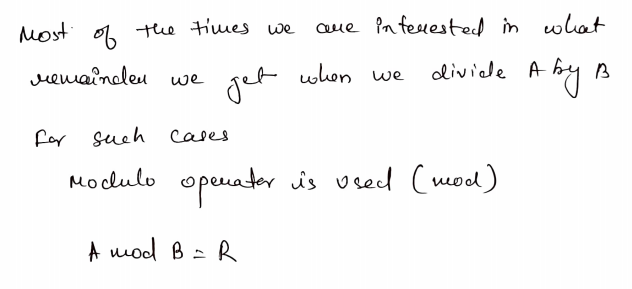 Most of the times we are interested in what
remainder we get when we divide A by B
for such cases
Modulo operator is used (mod)
A mod B = R